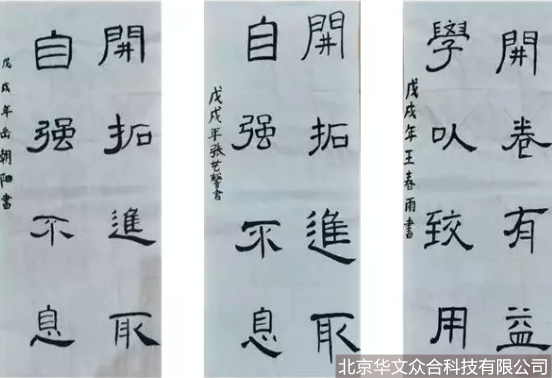 開拓進取
自强不息
戊戌年岳朝阳書
開拓進取
自强不息
戊戌年张艺馨書
開卷有益
學以致用
戊戌年王春雨書
北京华文众合科技有限公司